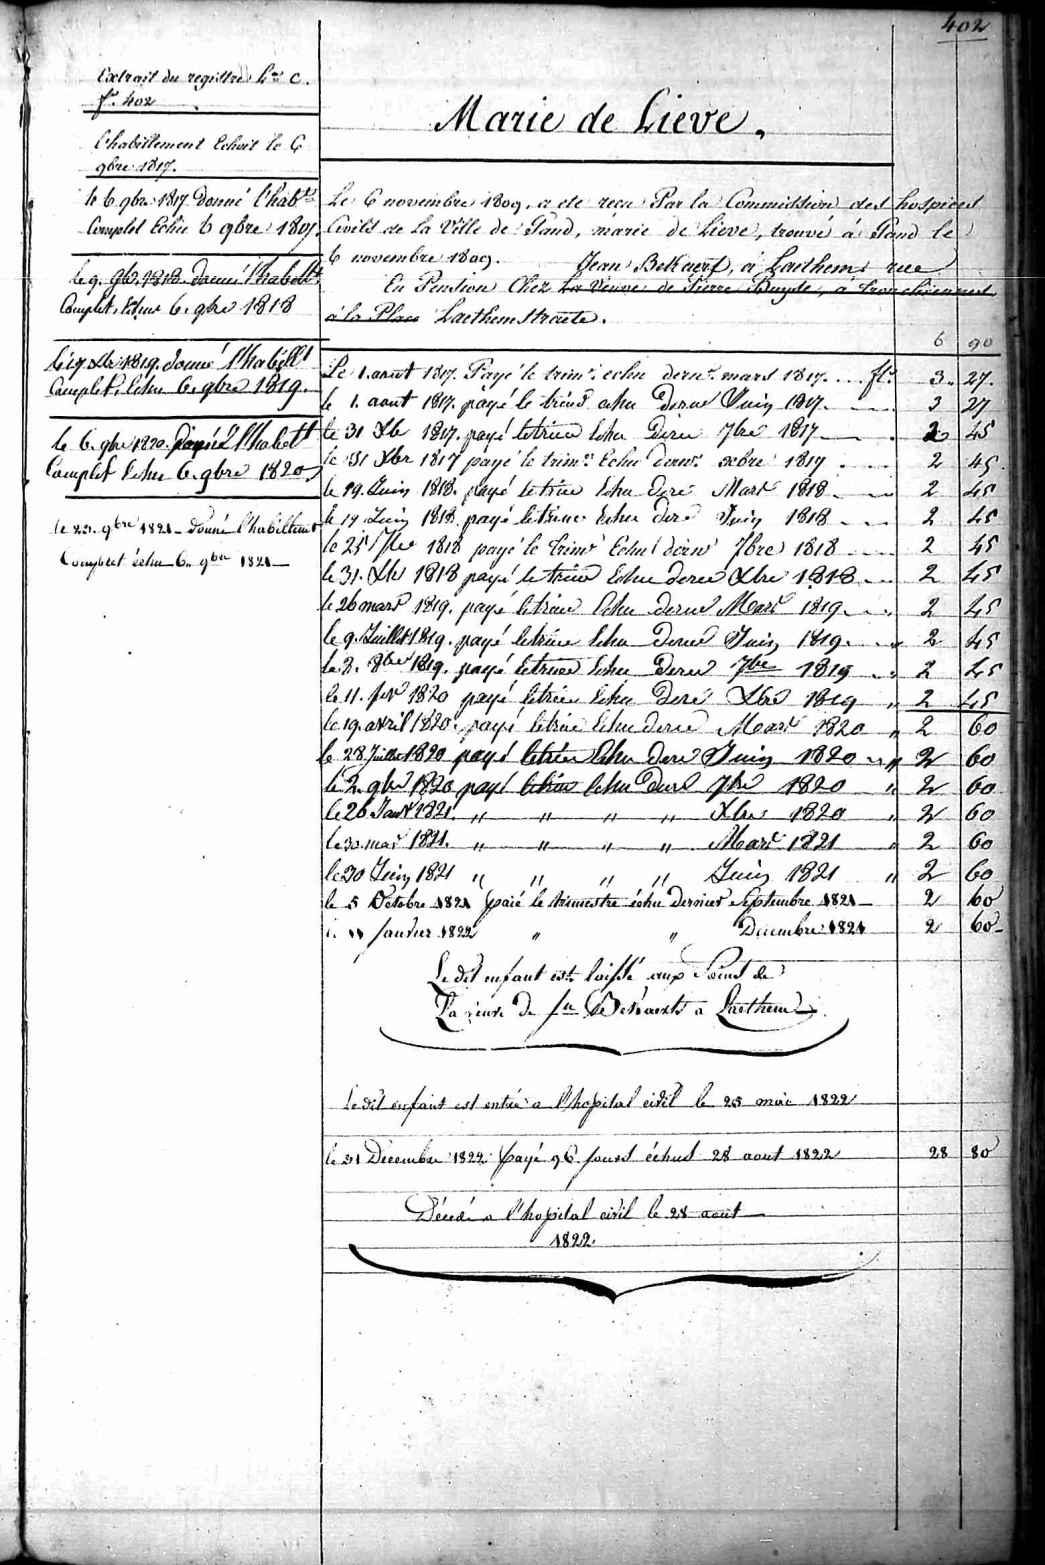 402
Extrait du registre Lre C.
fo. 402
l'habillement Echoit le 6
9bre 1817.
le 6. 9bre 1817 donné l'habts
Complet Echu 6 9bre 1807.
le 9. 9b. 1818 donné l'habellt
Complet, Echu 6. 9bre 1818
le 19 Xbr 1819. donné l'habillt
Complet, échu 6. 9bre 1819.
le 6. 9bre 1820. donné l'habellt
Complet Echu 6. 9bre 1820
le 23. 9bre 1821 donné l'habillemt
Complet échu 6. 9bre 1821
Marie de Lieve.
Le 6 novembre 1809, a eté recu Par la Commission des hospices
Civils de La Ville de Gand, marie de Lieve, trouvé à Gand le
6 novembre 1809. Jean Bekaert, à Laethem rue
En Pension Chez La Veuve de Pierre Buyde, a
à la Place Laethemstraete.
6 90
Le 1. aout 1817. Payé le trimr. echu dernr. mars 1817. fl. 3. 27.
le 1. aout 1817. payé le trimr echu Dernr Juin 1817. 3 27
le 31 Xb 1817. payé le trimr Echu Dernr 7bre 1817 2 45
le 31 Xbr 1817 payé le trimr Echu dernr. xbre 1817 2 45.
le 19. Juin 1818. payé le trimr Echu derr Mars 1818 2 45
le 19 Juin 1818 payé le trimr Echu derr Juin 1818 2 45
le 25 7br 1818 payé le trimr Echu dernr 7bre 1818 2 45
le 31. Xbr 1818 payé le trimr Echu dernr Xbre 1818 2 45
le 26 mars 1819. payé le trimr Echu dernr Mars 1819. 2 45
le 9. Juillet 1819. payé le trimr Echu dernr Juin 1819. 2 45
le 2. 8bre 1819. payé le trimr Echu dernr 7bre 1819 2 45
le 11. fevr 1820 payé le trimr Echu derr Xbre 1819 " 2 45
le 19. avril 1820. payé le trimr Echu dernr Mars 1820 " 2 60
le 28 Juillet 1820 payé le trimr Echu derr Juin 1820 " 2 60
le 2. 9bre 1820 payé le trimr Echu derr 7bre 1820 " 2 60
le 26 Janv 1821. " " " " Xbre 1820 " 2 60
le 30 mars 1821. " " " " Mars 1821 " 2 60
le 30 Juin 1821 " " " " Juin 1821 " 2 60
le 5 Octobre 1821 payé le trimestre échu dernier Septembre 1821 2 60
le 11 Janvier 1822 " " Decembre 1821 2 60
Le dit enfant est laissé aux Soins de
La veuve de fu Bekaerts a Laethem
Le dit enfant est entré a l'hopital civil le 25 mai 1822
le 31 Décembre 1822 payé 96 jours échus 28 aout 1822 28 80
Décédé a l'hopital civil le 28 aout
1822.